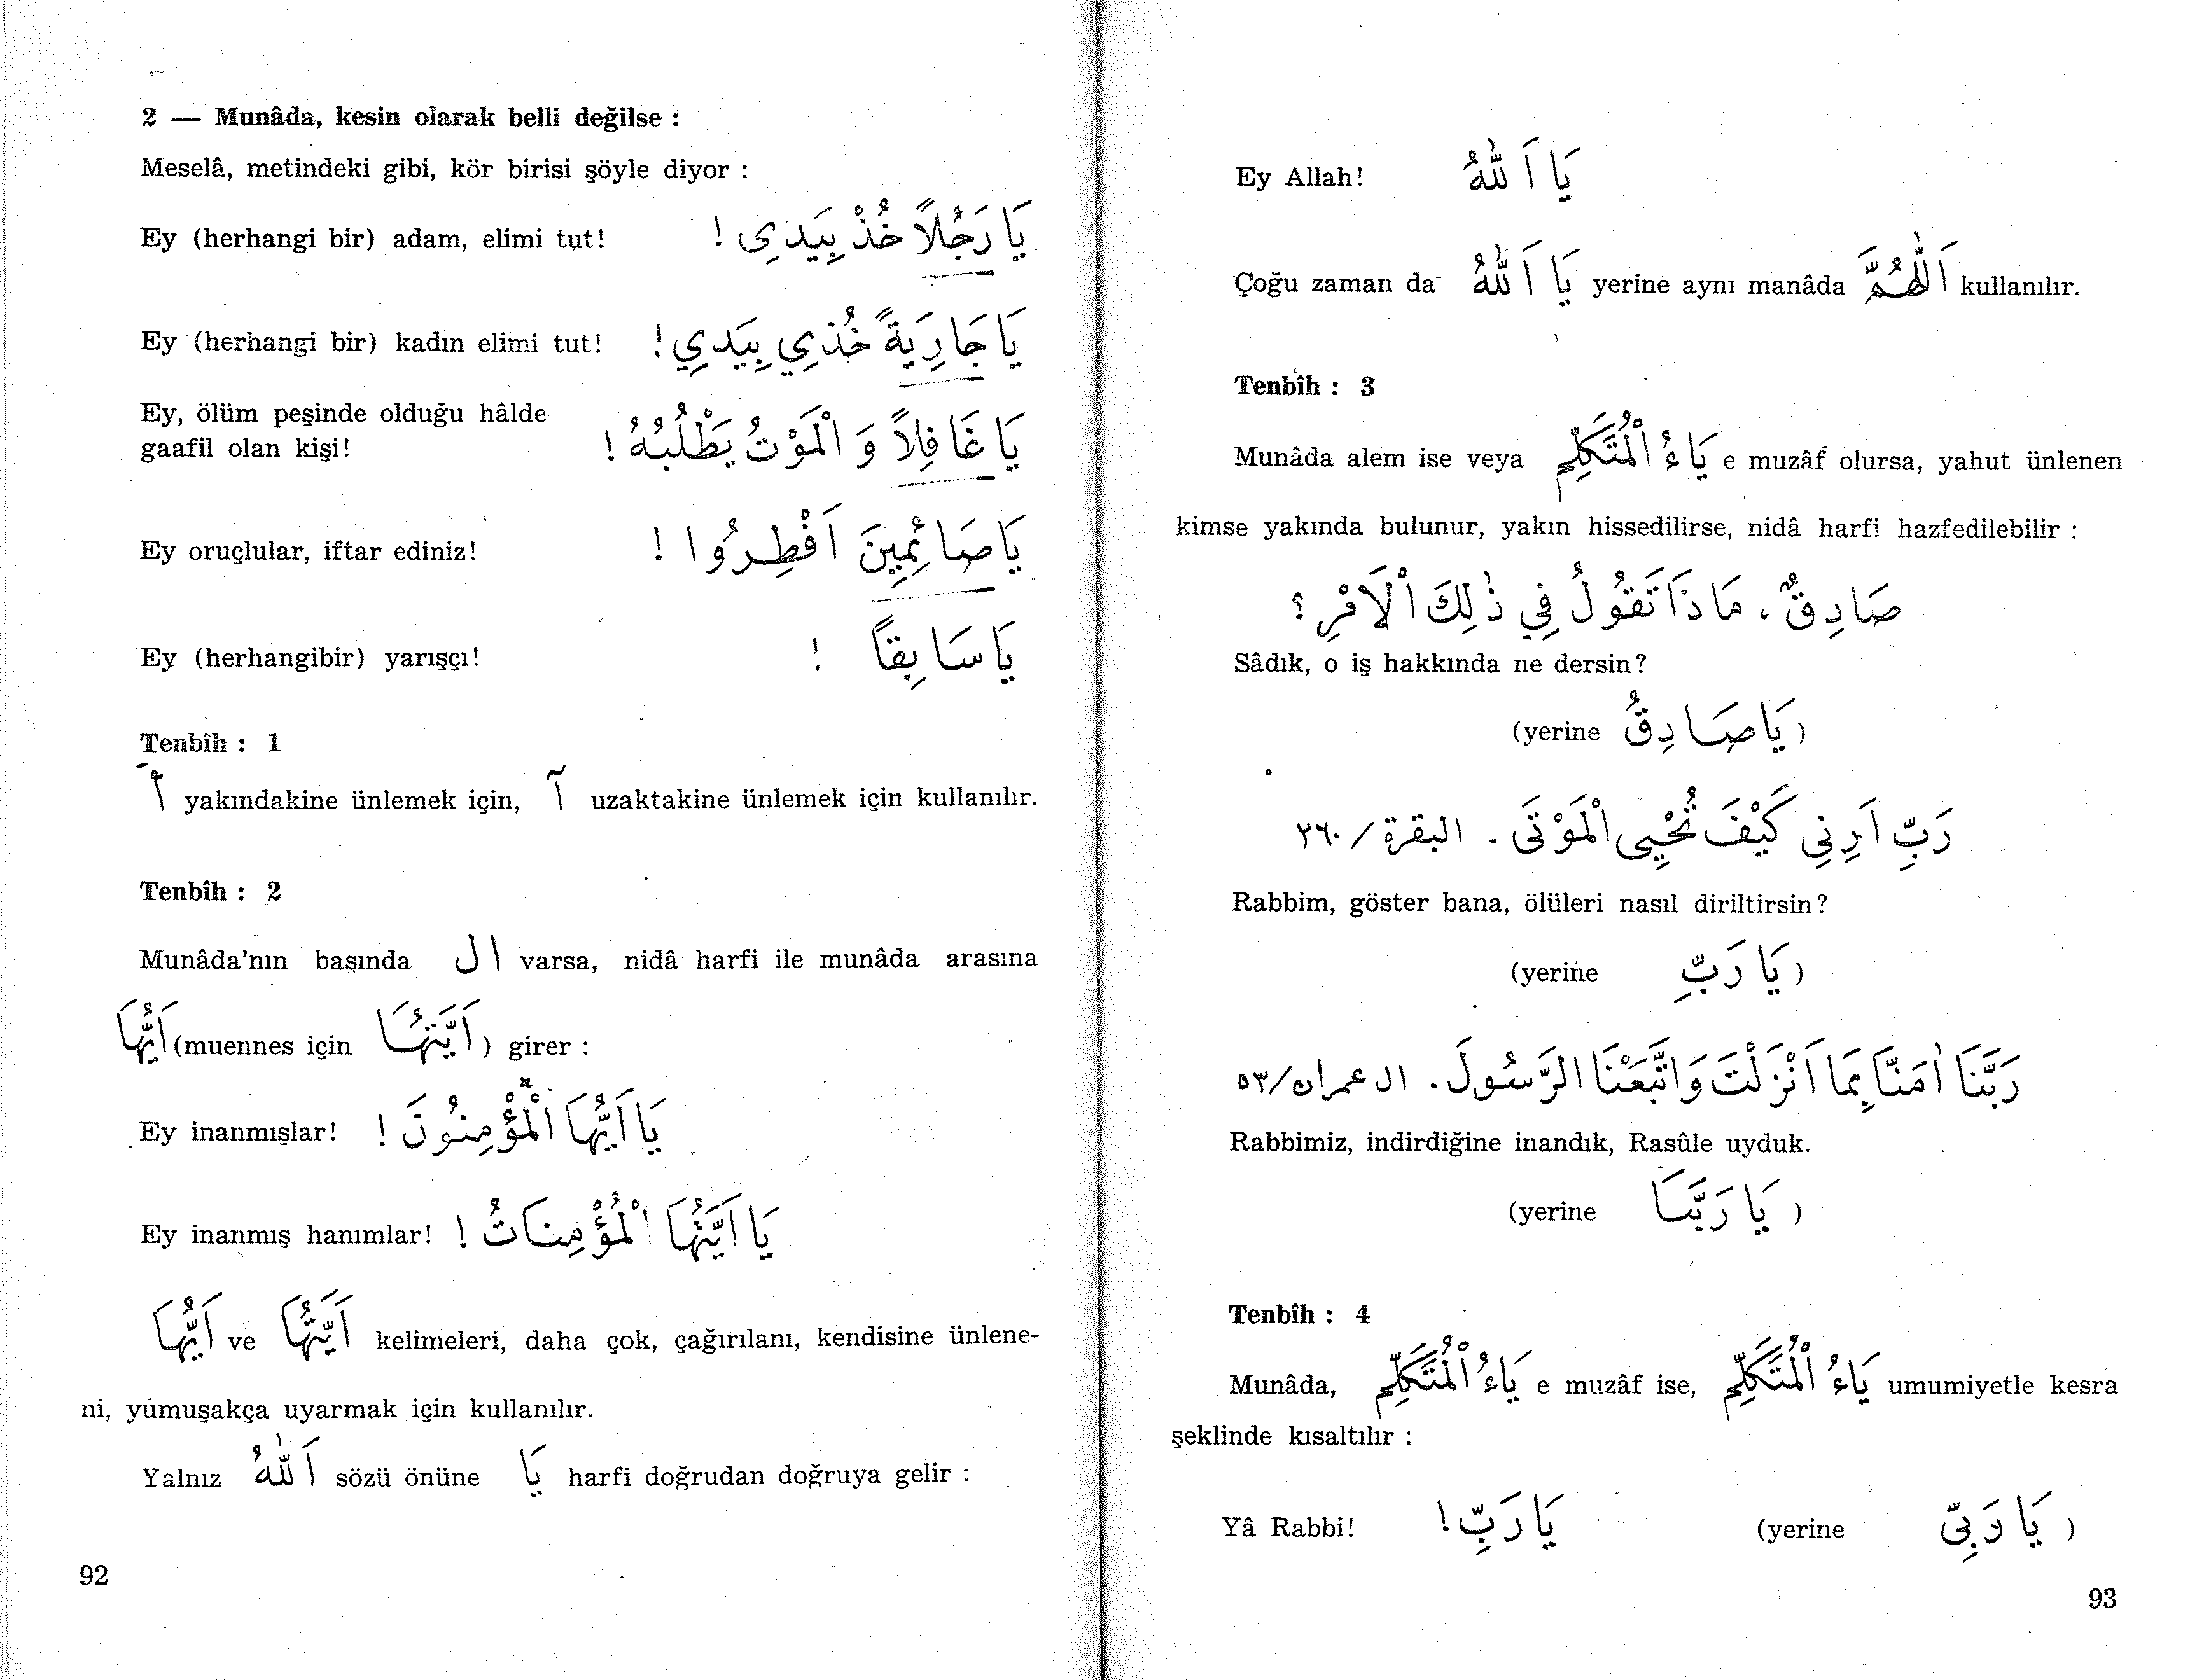 2 — Munâda, kesin olarak belli değilse :
Meselâ, metindeki gibi, kör birisi şöyle diyor :
Ey (herhangi bir) adam, elimi tut! يَا رَجُلًا خُذْ بِيَدِى !
Ey (herhangi bir) kadın elimi tut! يَا جَارِيَةً خُذِي بِيَدِي !
Ey, ölüm peşinde olduğu hâlde
gaafil olan kişi! يَا غَافِلًا وَ الْمَوْتُ يَطْلُبُهُ !
Ey oruçlular, iftar ediniz! يَا صَائِمِينَ اَفْطِرُوا !
Ey (herhangibir) yarışçı! يَا سَابِقًا !
Tenbîh : 1
أَ yakındakine ünlemek için, آ uzaktakine ünlemek için kullanılır.
Tenbîh : 2
Munâda'nın başında ال varsa, nidâ harfi ile munâda arasına
اَيُّهَا (muennes için اَيَّتُهَا ) girer :
Ey inanmışlar! يَا اَيُّهَا الْمُؤْمِنُونَ !
Ey inanmış hanımlar! يَا اَيَّتُهَا الْمُؤْمِنَاتُ !
اَيُّهَا ve اَيَّتُهَا kelimeleri, daha çok, çağırılanı, kendisine ünlene-
ni, yumuşakça uyarmak için kullanılır.
Yalnız اَللّٰهُ sözü önüne يَا harfi doğrudan doğruya gelir :
92
Ey Allah! يَا اَللّٰهُ
Çoğu zaman da يَا اَللّٰهُ yerine aynı manâda اَللّٰهُمَّ kullanılır.
Tenbîh : 3
Munâda alem ise veya يَاءُ الْمُتَكَلِّمِ e muzâf olursa, yahut ünlenen
kimse yakında bulunur, yakın hissedilirse, nidâ harfi hazfedilebilir :
صَادِقٌ ، مَاذَا تَقُولُ فِي ذٰلِكَ الْاَمْرِ ؟
Sâdık, o iş hakkında ne dersin?
(yerine يَا صَادِقُ )
رَبِّ اَرِنِي كَيْفَ تُحْيِى الْمَوْتَى . البقرة /٢٦٠
Rabbim, göster bana, ölüleri nasıl diriltirsin?
(yerine يَا رَبِّ )
رَبَّنَا اٰمَنَّا بِمَا اَنْزَلْتَ وَاتَّبَعْنَا الرَّسُولَ . ال عمران/٥٣
Rabbimiz, indirdiğine inandık, Rasûle uyduk.
(yerine يَا رَبَّنَا )
Tenbîh : 4
Munâda, يَاءُ الْمُتَكَلِّمِ e muzâf ise, يَاءُ الْمُتَكَلِّمِ umumiyetle kesra
şeklinde kısaltılır :
Yâ Rabbi! يَا رَبِّ ! (yerine يَا رَبِّى )
93